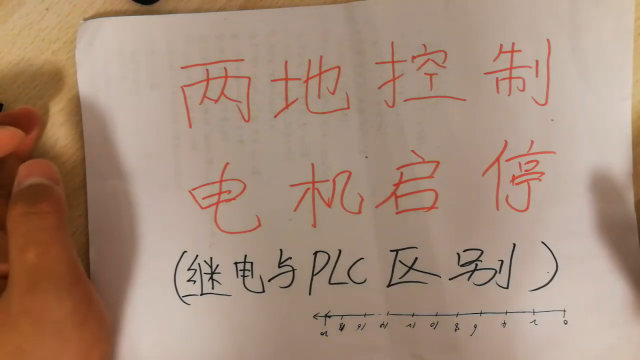 两地控制
电机启停
(继电与PLC区别)